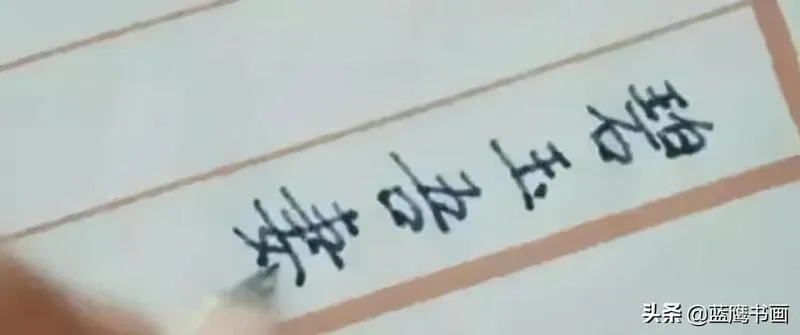 碧玉吾妻
头条 @蓝鹰书画